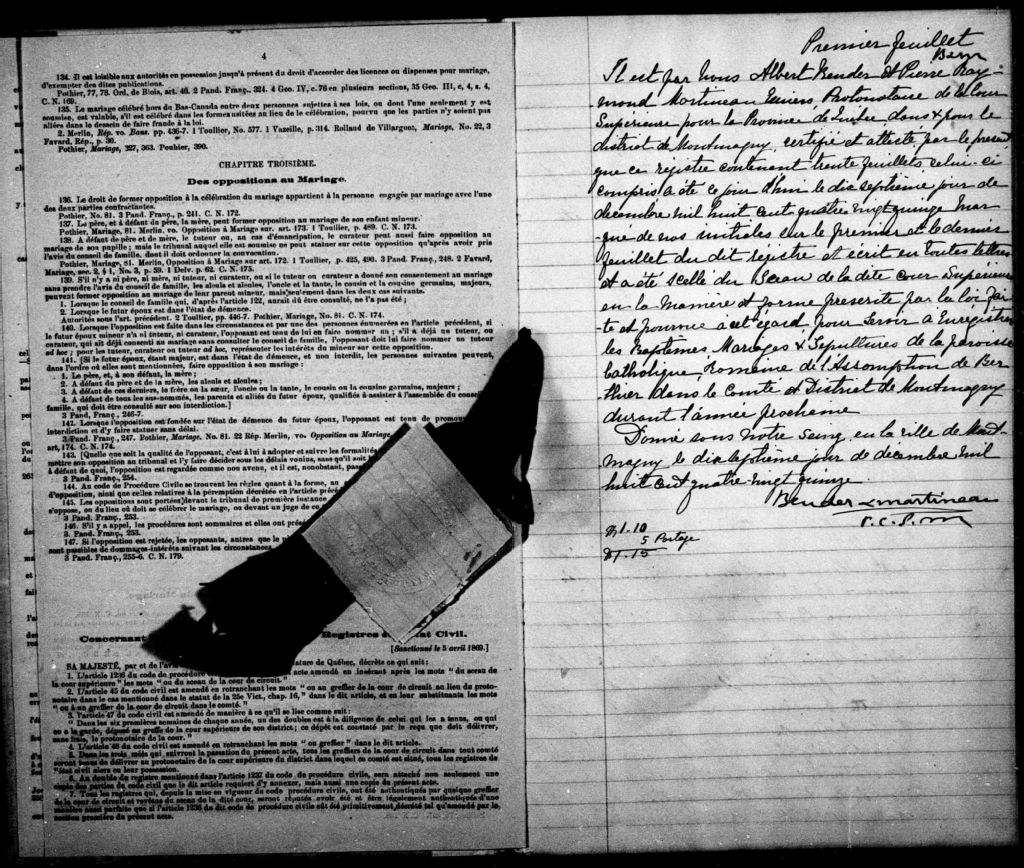 4
134. Il est loisible aux autorités en possession jusqu'à présent du droit d'accorder des licences ou dispenses pour mariage,
d'exempter des dites publications.
Pothier, 77, 78. Ord. de Blois, art. 40. 2 Pand. Franç., 324. 4 Geo. IV, c. 76 en plusieurs sections, 35 Geo. III, c, 4, s. 4,
C. N. 169.
135. Le mariage célébré hors du Bas-Canada entre deux personnes sujettes à ses lois, ou dont l'une seulement y est
soumise, est valable, s'il est célébré dans les formes usitées au lieu de la célébration, pourvu que les parties n'y soient pas
allées dans le dessein de faire fraude à la loi.
2. Merlin, Rép. vo. Bans. pp. 436-7. 1 Toullier, No. 577. 1 Vazeille, p. 314. Rolland de Villargues, Mariage, No. 22, 3
Favard, Rép., p. 30.
Pothier, Mariage, 327, 363. Pouhier, 390.
CHAPITRE TROISIÈME.
Des oppositions au Mariage.
136. Le droit de former opposition à la célébration du mariage appartient à la personne engagée par mariage avec l'une
des deux parties contractantes.
Pothier, No. 81. 3 Pand. Franç., p. 241. C. N. 172.
137. Le père, et à défaut du père, la mère, peut former opposition au mariage de son enfant mineur.
Pothier, Mariage, 81. Merlin, vo. Opposition à Mariage sur. art. 173. 1 Toullier, p. 489. C. N. 173.
138. A défaut de père et de mère, le tuteur ou, au cas d'émancipation, le curateur peut aussi faire opposition au
mariage de son pupille ; mais le tribunal auquel elle est soumise ne peut statuer sur cette opposition qu'après avoir pris
l'avis du conseil de famille, dont il doit ordonner la convocation.
Pothier, Mariage, 81. Merlin, Opposition à Mariage sur art. 172. 1 Toullier, p. 425, 490. 3 Pand. Franç., 248. 2 Favard,
Mariage, sec. 2, § 1, No. 3, p. 59. 1 Delv. p. 62. C. N. 175.
139. S'il n'y a ni père, ni mère, ni tuteur, ni curateur, ou si le tuteur ou curateur a donné son consentement au mariage
sans prendre l'avis du conseil de famille, les aïeuls et aïeules, l'oncle et la tante, le cousin et la cousine germains, majeurs,
peuvent former opposition au mariage de leur parent mineur, mais seulement dans les deux cas suivants.
1. Lorsque le conseil de famille qui, d'après l'article 122, aurait dû être consulté, ne l'a pas été ;
2. Lorsque le futur époux est dans l'état de démence.
Autorités sous l'art. précédent. 2 Toullier, pp. 446-7. Pothier, Mariage, No. 81. C. N. 174.
140. Lorsque l'opposition est faite dans les circonstances et par une des personnes énumérées en l'article précédent, si
le futur époux mineur n'a ni tuteur, ni curateur, l'opposant est tenu de lui en faire nommer un ; s'il a déjà un tuteur, ou
curateur, qui ait déjà consenti au mariage sans consulter le conseil de famille, l'opposant doit lui faire nommer un tuteur
ad hoc ; pour les tuteur, curateur ou tuteur ad hoc, représenter les intérêts du mineur sur cette opposition.
141. [Si le futur époux, étant majeur, est dans l'état de démence, et non interdit, les personnes suivantes peuvent,
dans l'ordre où elles sont mentionnées, faire opposition à son mariage :
1. Le père, et, à son défaut, la mère ;
2. A défaut du père et de la mère, les aïeuls et aïeules ;
3. A défaut de ces derniers, le frère ou la sœur, l'oncle ou la tante, le cousin ou la cousine germains, majeurs ;
4. A défaut de tous les sus-nommés, les parents et alliés du futur époux, qualifiés à assister à l'assemblée du conse
famille, qui doit être consulté sur son interdiction.]
3 Pand. Franç., 246-7.
147. Lorsque l'opposition est fondée sur l'état de démence du futur époux, l'opposant est tenu de promou
interdiction et d'y faire statuer sans délai.
3 Pand. Franç., 247. Pothier, Mariage, No. 81. 22 Rép. Merlin, vo. Opposition au Mariage
art, 174. C. N. 174.
143. [Quelle que soit la qualité de l'opposant, c'est à lui à adopter et suivre les formalités
mettre son opposition au tribunal et l'y faire décider sous les délais voulus, sans qu'il soit
à défaut de quoi, l'opposition est regardée comme non avenu, et il est, nonobstant, pass
3 Pand. Franç., 254.
144. Au code de Procédure Civile se trouvent les règles quant à la forme, au
d'opposition, ainsi que celles relatives à la péremption décrétée en l'article précé
145. Les oppositions sont portées devant le tribunal de première instance
s'oppose, ou du lieu où doit se célébrer le mariage, ou devant un juge de ce
3 Pand. Franç., 253.
146. S'il y a appel, les procédures sont sommaires et elles ont pré
3. Pand. Franç., 253.
147. Si l'opposition est rejetée, les opposants, autres que le p
sont passibles de dommages-intérêts suivant les circonstances
3 Pand, Franç., 255-6. C. N. 179.
Concernant Registres d at Civil.
[Sanctionné le 5 avril 1869.]
SA MAJESTÉ, par et de l'avis ature de Québec, décrète ce qui suit:
1. L'article 1236 du code de procédure acte amendé en insérant après les mots " du sceau de
la cour supérieure " les mots " ou du sceau de la cour de circuit."
2. L'article 45 du code civil est amendé en retranchant les mots " ou au greffier de la cour de circuit au lieu du proto-
notaire dans le cas mentionné dans le statut de la 25e Vict., chap. 16," dans le dit article, et en leur substituant les mots
" ou à un greffier de la cour de circuit dans le comté."
3. l'article 47 du code civil est amendé de manière à ce qu'il se lise comme suit :
" Dans les six premières semaines de chaque année, un des doubles est à la diligence de celui qui les a tenus, ou qui
en a la garde, déposé au greffe de la cour supérieure de son district ; ce dépôt est constaté par le reçu que doit délivrer,
sans frais, le protonotaire de la cour."
4. L'article 48 du code civil est amendé en retranchant les mots " ou greffier " dans le dit article.
5. Dans les trois mois qui suivront la passation du présent acte, tous les greffiers de la cour de circuit dans tout comté
seront tenus de délivrer au protonotaire de la cour supérieure du district dans lequel ce comté est situé, tous les registres de
l'état civil alors en leur possession.
6. Au double du registre mentionné dans l'article 1237 du code de procédure civile, sera attaché non seulement une
copie des parties du code civil que le dit article requiert d'y annexer, mais aussi une copie du présent acte.
7. Tous les registres qui, depuis la mise en vigueur du code procédure civile, ont été authentiqués par quelque greffier
de la cour de circuit et revêtus du sceau de la dite cour, seront réputés avoir été et être légalement authentiqués d'une
manière aussi parfaite que si l'article 1236 du dit code de procédure civile eût été primitivement décrété tel qu'amendé par la
section première du présent acte.
Premier feuillet
B&m
Il est par Nous Albert Bender et Pierre Ray-
mond Martineau Ecuiers Protonotaire de la Cour
Supérieure pour la Province de Québec dans & pour le
district de Montmagny, certifié et attesté par le present
que ce registre contenant trente feuillets celui-ci
compris a été ce jour d'hui le dix septième jour de
decembre mil huit cent quatre vingt quinze mar
-qué de nos initiales sur le premier et le dernier
feuillet du dit registre et écrit en toutes lettres
et a été scellé du Sceau de la dite Cour Superieure
en la Manière et forme prescrite par la loi fai
te et pourvue a cet égard, pour servir a Enregistrer
les Baptêmes Mariages & Sepultures de la paroisse
Catholique, Romaine de l'Assomption de Ber
thier dans le Comté et District de Montmagny
durant l'année prochaine
Donné sous notre seing, en la ville de Mont-
magny le dix septième jour de decembre mil
huit cent quatre vingt quinze
Bender & Martineau
P. C. S. M
$1.10
5 Postage
$1.15